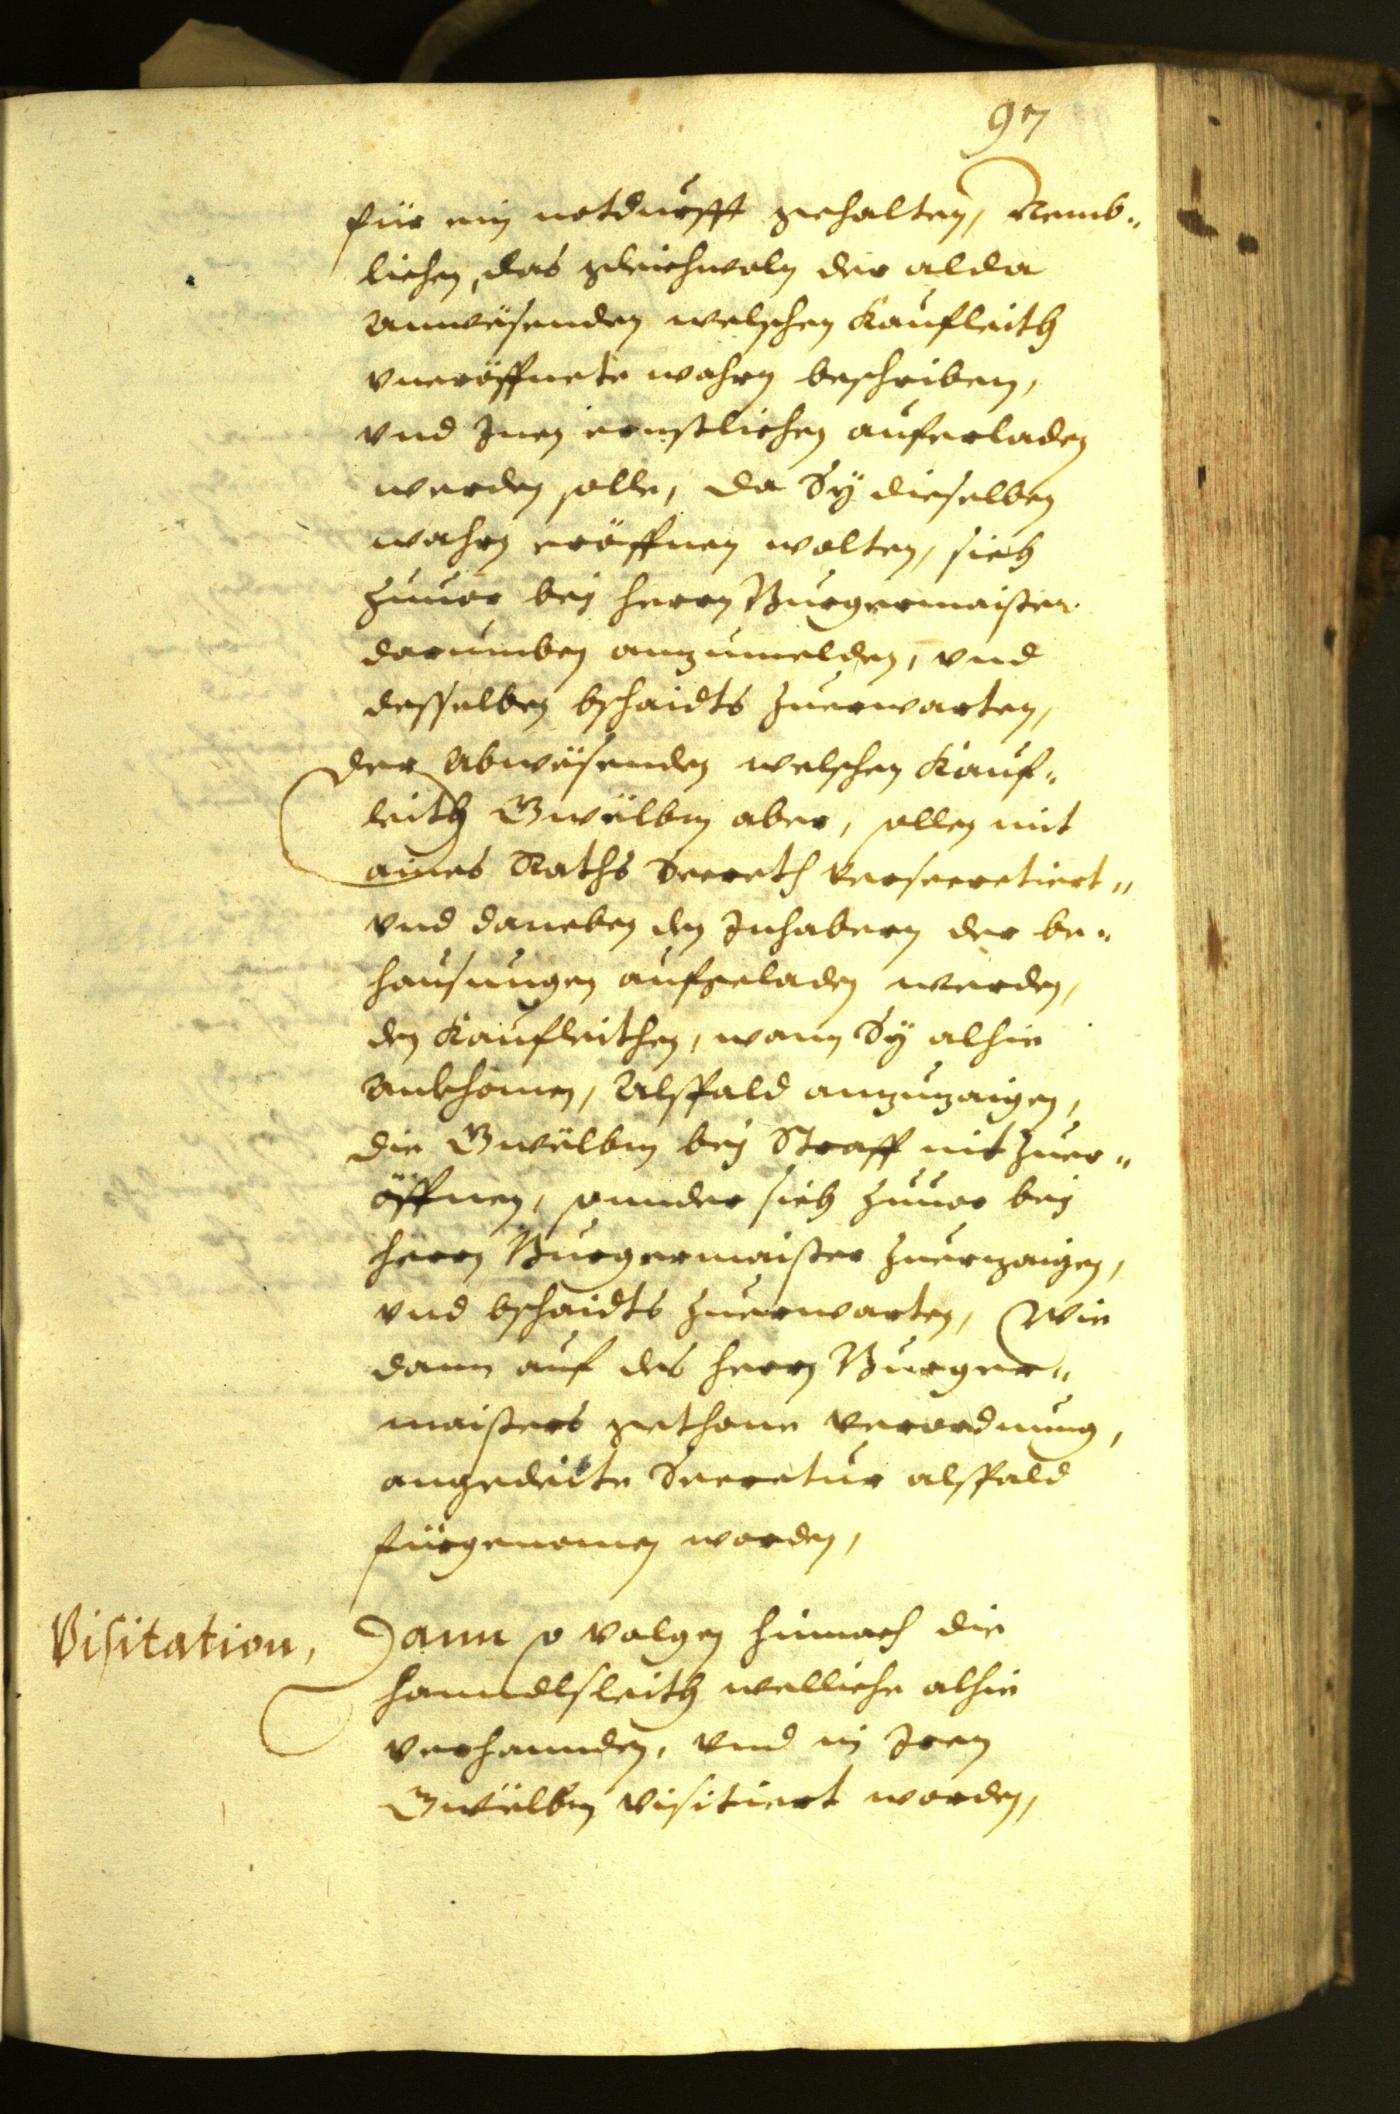 97
für ein notdurfft gehalten, Nemb-
lichen, das gleichwoln der alda
Anwësenden welschen Kaufleith
vneröffnete wahrn beschriben,
vnd Inen ernstlichen auferladen
werden solle, da Sÿ dieselben
wahrn eröffnen wolten, sich
zuuor bej herrn Burgermaister
darumben anzumelden, vnd
desselben bschaidts zuerwarten,
der Abwësenden welschen Kauf-
leith Gwëlbm aber, sollen mit
aines Raths Secreth versecretiert
vnd daneben den Inhabern der be-
hausungen aufgeladen werden,
den Kaufleithen, wann Sÿ alhie
Ankhomen, Alspald anzuzaigen,
die Gwëlbm bej Straff nit zuer-
öffnen, sonnder sich zuuor bej
herrn Burgermaister zuerzaigen,
vnd bschaidts zuerwarten, Wie
dann auf des herrn Burger-
maisters gethone verordnung,
angedeite Secretur alspald
fürgenomen worden,
Visitation,
Dann so volgen hinnach die
hanndlsleith welliche alhie
verhannden, vnd in Iren
Gwëlbm visitiert worden,